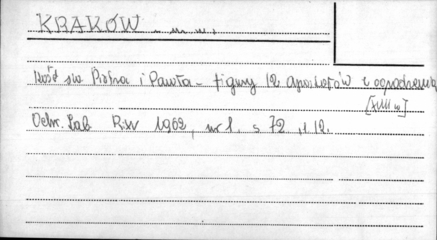 KRAKÓW m. w.
Kośc św Piotra i Pawła - figury 12 apostołów z ogrodzenia
[XVIII w]
Ochr. Zab R. XV 1962, nr 1. s 72 , i 12.